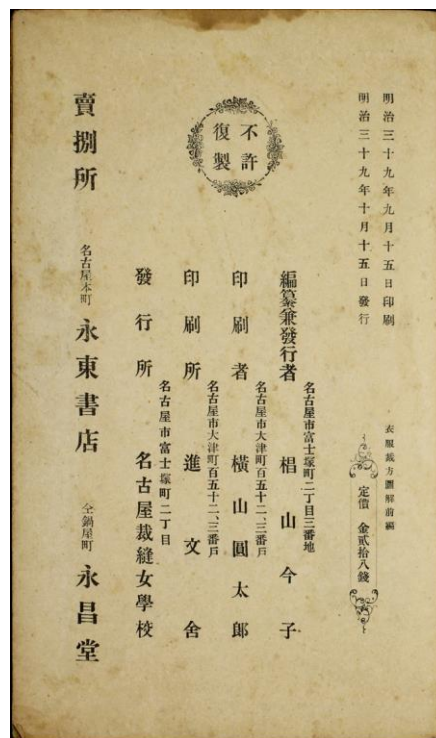 明治三十九年九月十五日印刷
明治三十九年十月十五日發行
衣服裁方圖解前編
定價 金貳拾八錢
不許
復製
名古屋市富士塚町二丁目三番地
編纂兼發行者 椙山今子
名古屋市大津町百五十二、三番戶
印刷者 橫山圓太郎
名古屋市大津町百五十二、三番戶
印刷所 進文舍
名古屋市富士塚町二丁目
發行所 名古屋裁縫女學校
賣捌所 名古屋本町 永東書店 仝鍋屋町 永昌堂